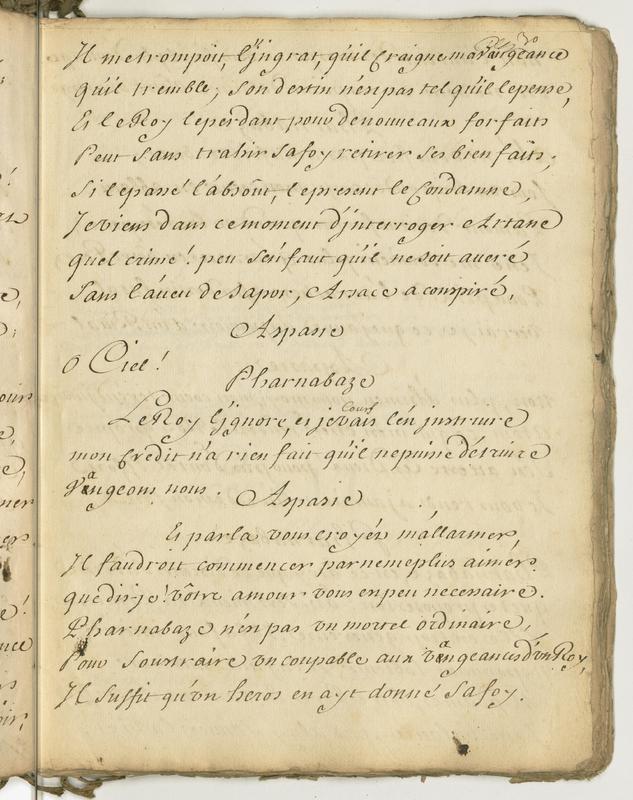 Il me trompoit, l'jngrat, qu'il craigne ma vangeance
qu'il tremble; Son destin n'est pas tel qu'il le pense,
Et le Roy le perdant pour de nouveaux forfaits
Peut Sans trahir Sa foy retirer Ses bienfaits;
Si le passé l'absout, le present le Condamne,
Je viens dans ce moment d'jnterroger Artane
quel crime! peu s'en faut qu'il ne soit averé
Sans l'aveu de Sapor, Arsace a conspiré,
Aspasie
O Ciel!
Pharnabaze
Le Roy l'jgnore, et je cours l'en jnstruire
mon Credit n'a rien fait qu'il ne puisse détruire
Vangeons nous.
Aspasie
Et par la vous croyés m'allarmer,
Il faudroit commencer par ne me plus aimer.
que dis-je! vôtre amour vous en peu necessaire.
Pharnabaze n'est pas un mortel ordinaire,
Pour Soustraire un coupable aux vangeances d'un Roy,
Il Suffit qu'un heros en ayt donné Sa foy.